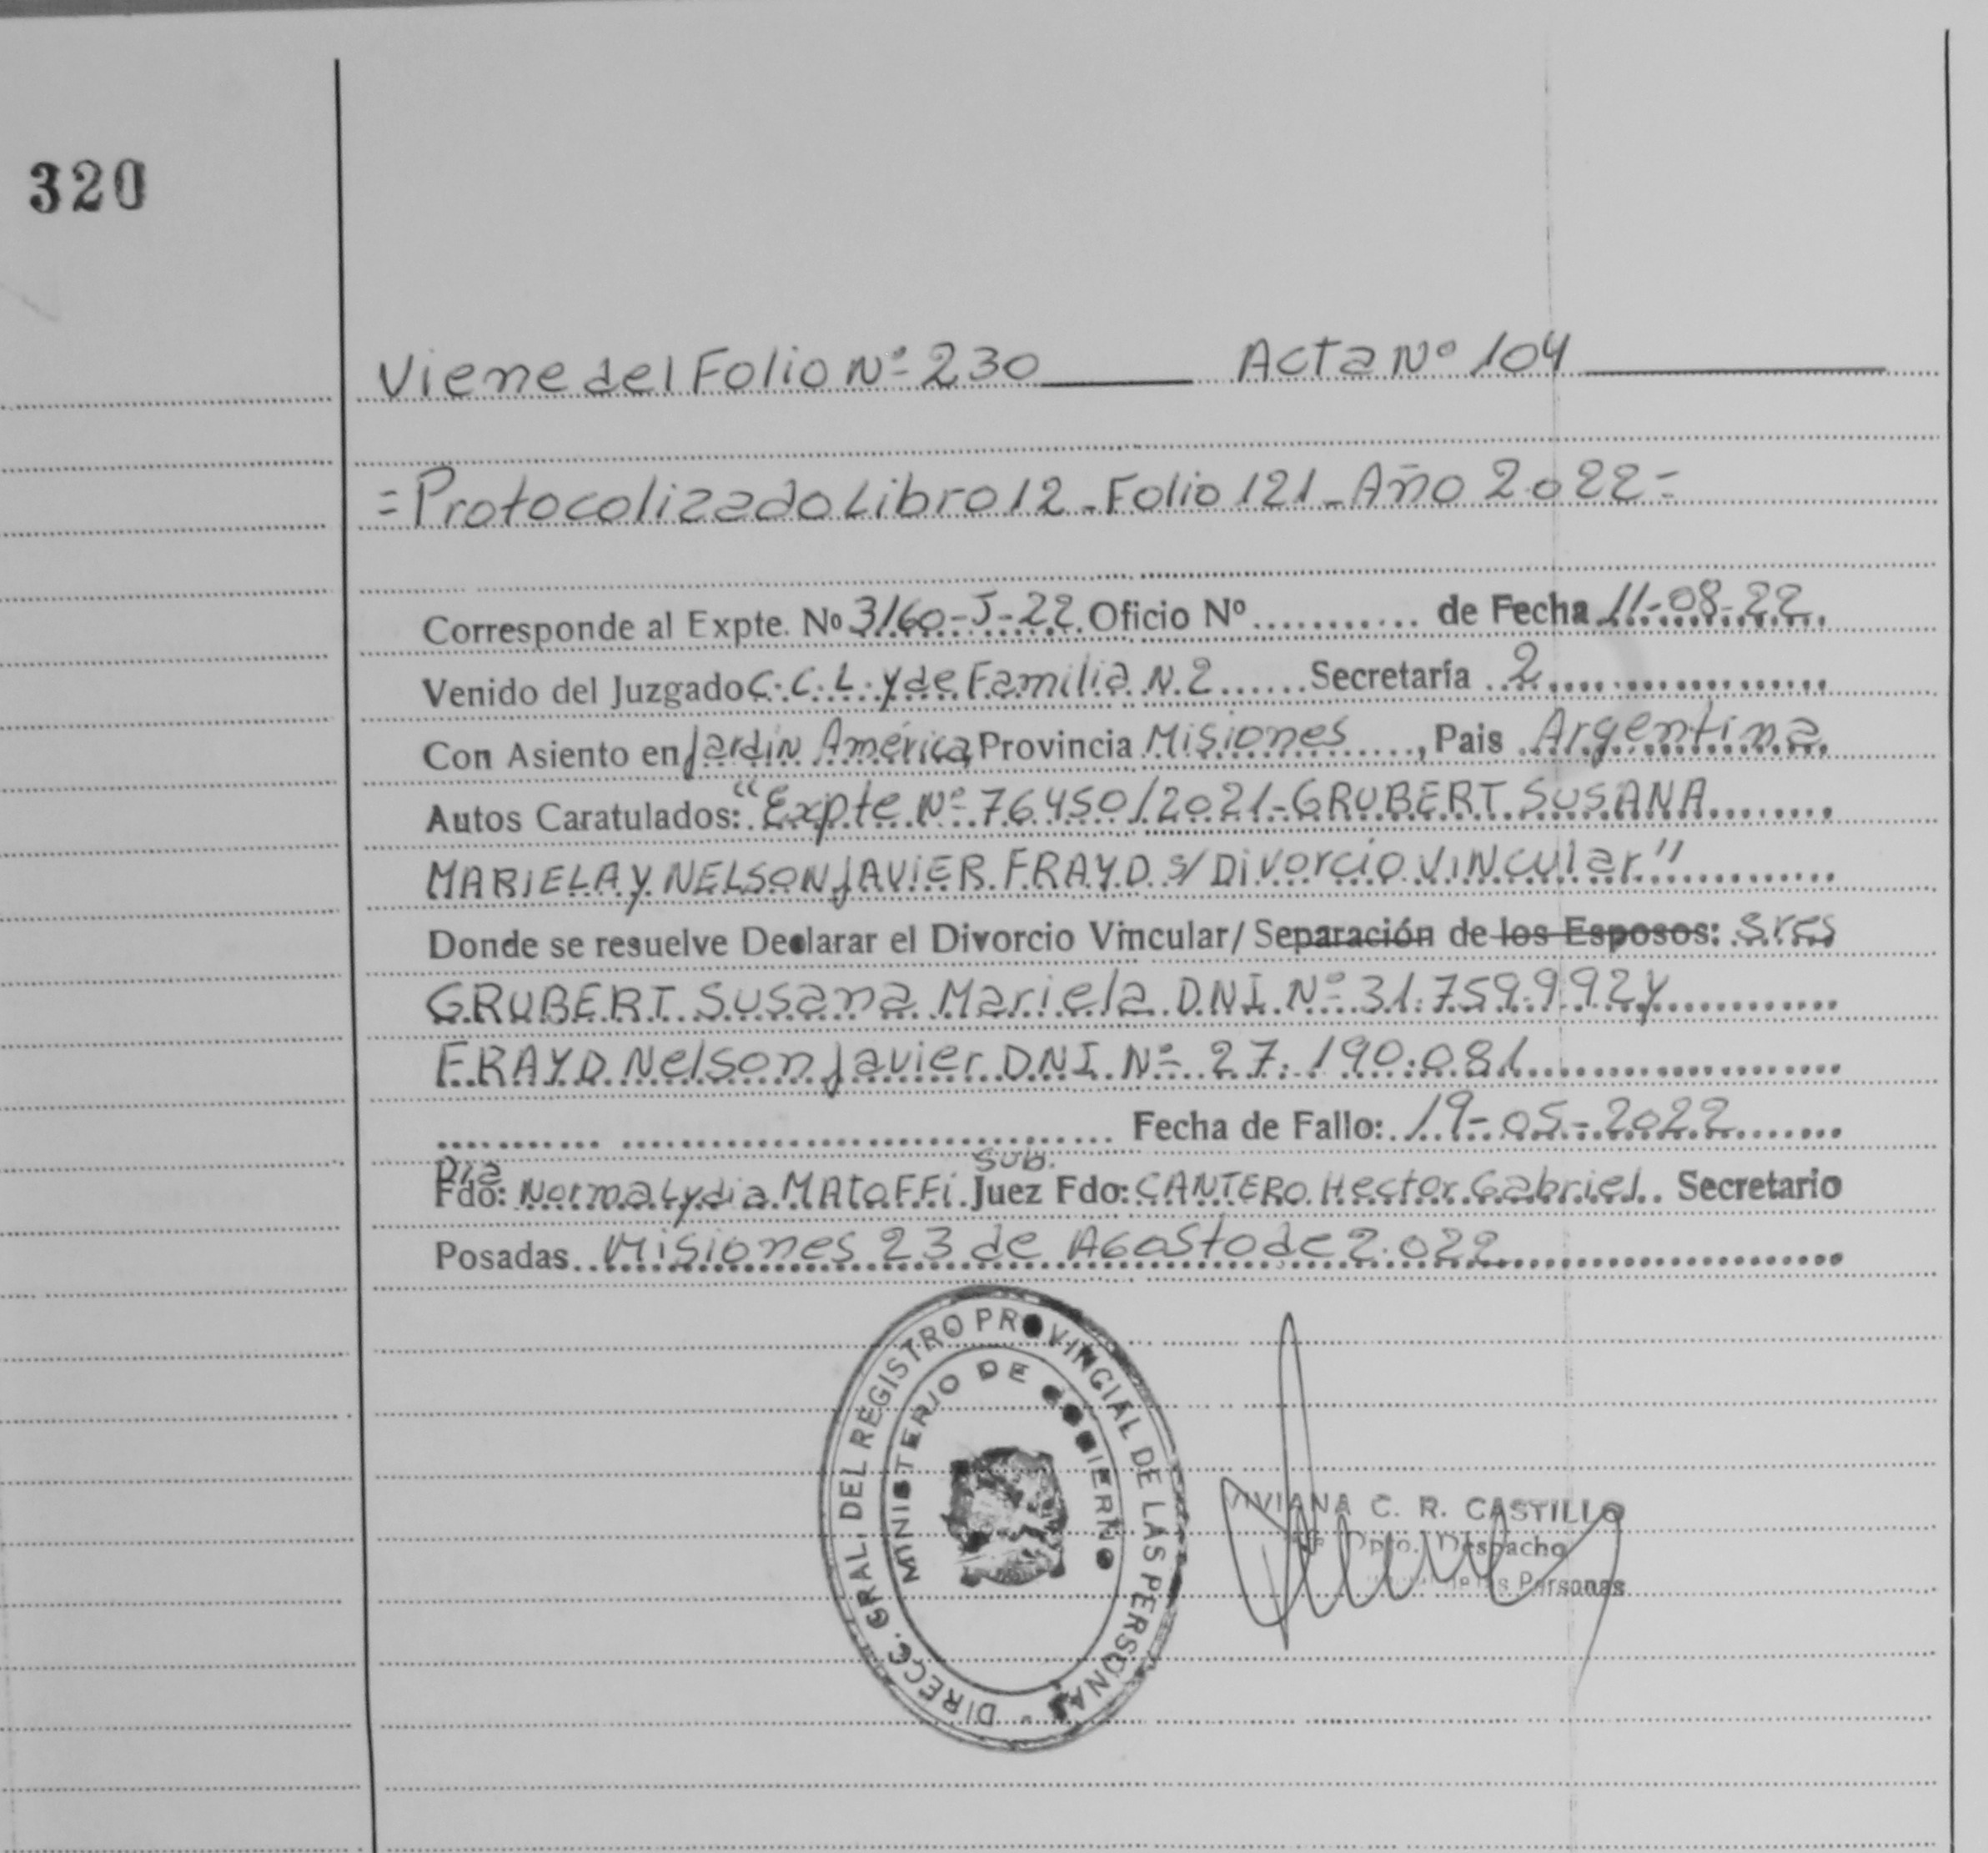 320
Viene del Folio Nº 230 Acta Nº 104
= Protocolizado Libro 12 - Folio 121 - Año 2022 =
Corresponde al Expte. Nº 3160-J-22. Oficio Nº ............ de Fecha 11-08-22.
Venido del Juzgado C.C.L. y de Familia N. 2 ...... Secretaría 2
Con Asiento en Jardín América, Provincia Misiones ....., Pais Argentina
Autos Caratulados: "Expte Nº 76450/2021-GRUBERT SUSANA
MARIELA Y NELSON JAVIER FRAYD s/ Divorcio Vincular"
Donde se resuelve Declarar el Divorcio Vincular/ Separación de los Esposos: sres
GRUBERT Susana Mariela DNI Nº 31.759.992 y
FRAYD Nelson Javier DNI Nº 27.190.081
Fecha de Fallo: 19-05-2022
Dra Sub.
Fdo: Norma Lydia MAtoFFi Juez Fdo: CANTERO Hector Gabriel. Secretario
Posadas Misiones 23 de Agosto de 2.022
DIRECC. GRAL. DEL REGISTRO PROVINCIAL DE LAS PERSONAS -
MINISTERIO DE GOBIERNO
VIVIANA C. R. CASTILLO
Dpto. Despacho
de las Personas